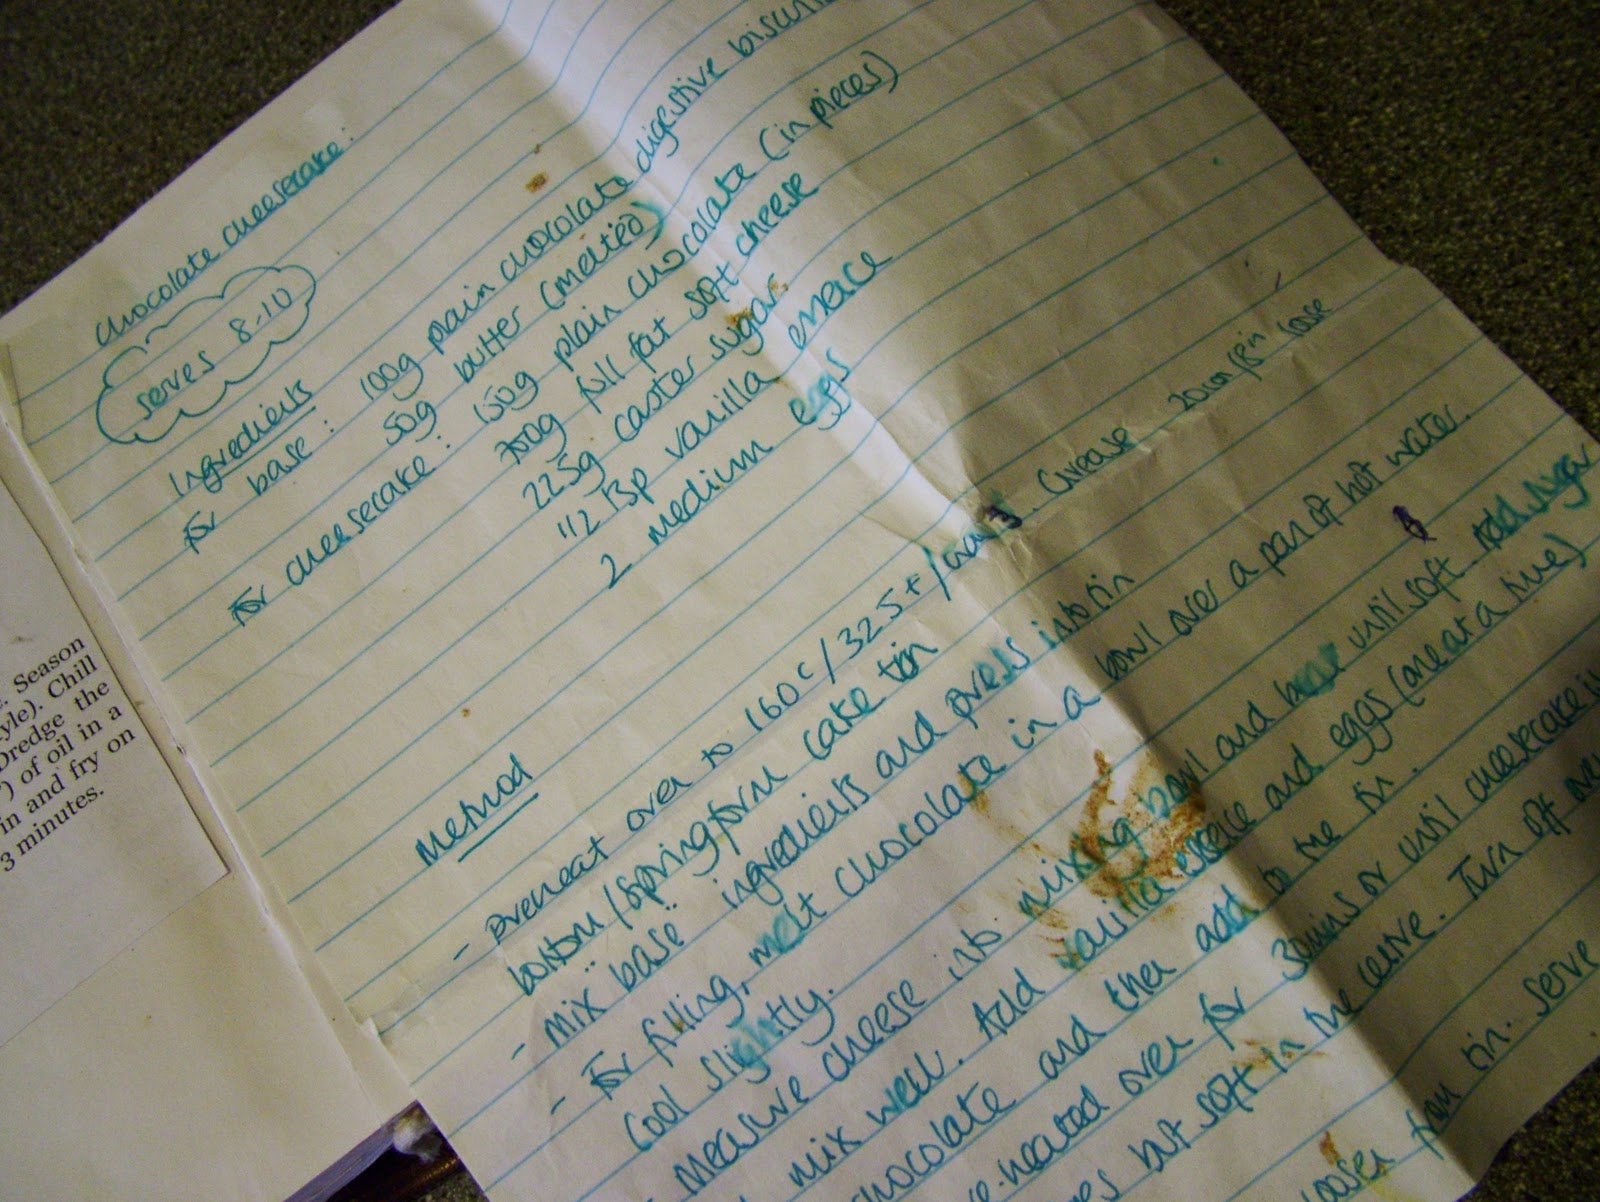 Chocolate cheesecake:
serves 8-10
Ingredients
for base: 100g plain chocolate digestive
50g butter (melted)
For cheesecake: 150g plain chocolate (in pieces)
700g full fat soft cheese
225g caster sugar
1/2 tsp vanilla essence
2 medium eggs
Method
- preheat oven to 160c/325f/ Grease 20cm/8in loose
bottom/springform cake tin
- mix base ingredients and press into tin
- For filling, melt chocolate in a bowl over a pan of hot water.
Cool slightly.
- Measure cheese into mixing bowl and until soft. Add sugar
mix well. Add vanilla essence and eggs (one at a time)
chocolate and then add to the tin.
heated oven for 30mins or until cheesecake
but soft in the centre. Turn off
from tin. Serve
Season
yle). Chill
Dredge the
) of oil in a
in and fry on
3 minutes.